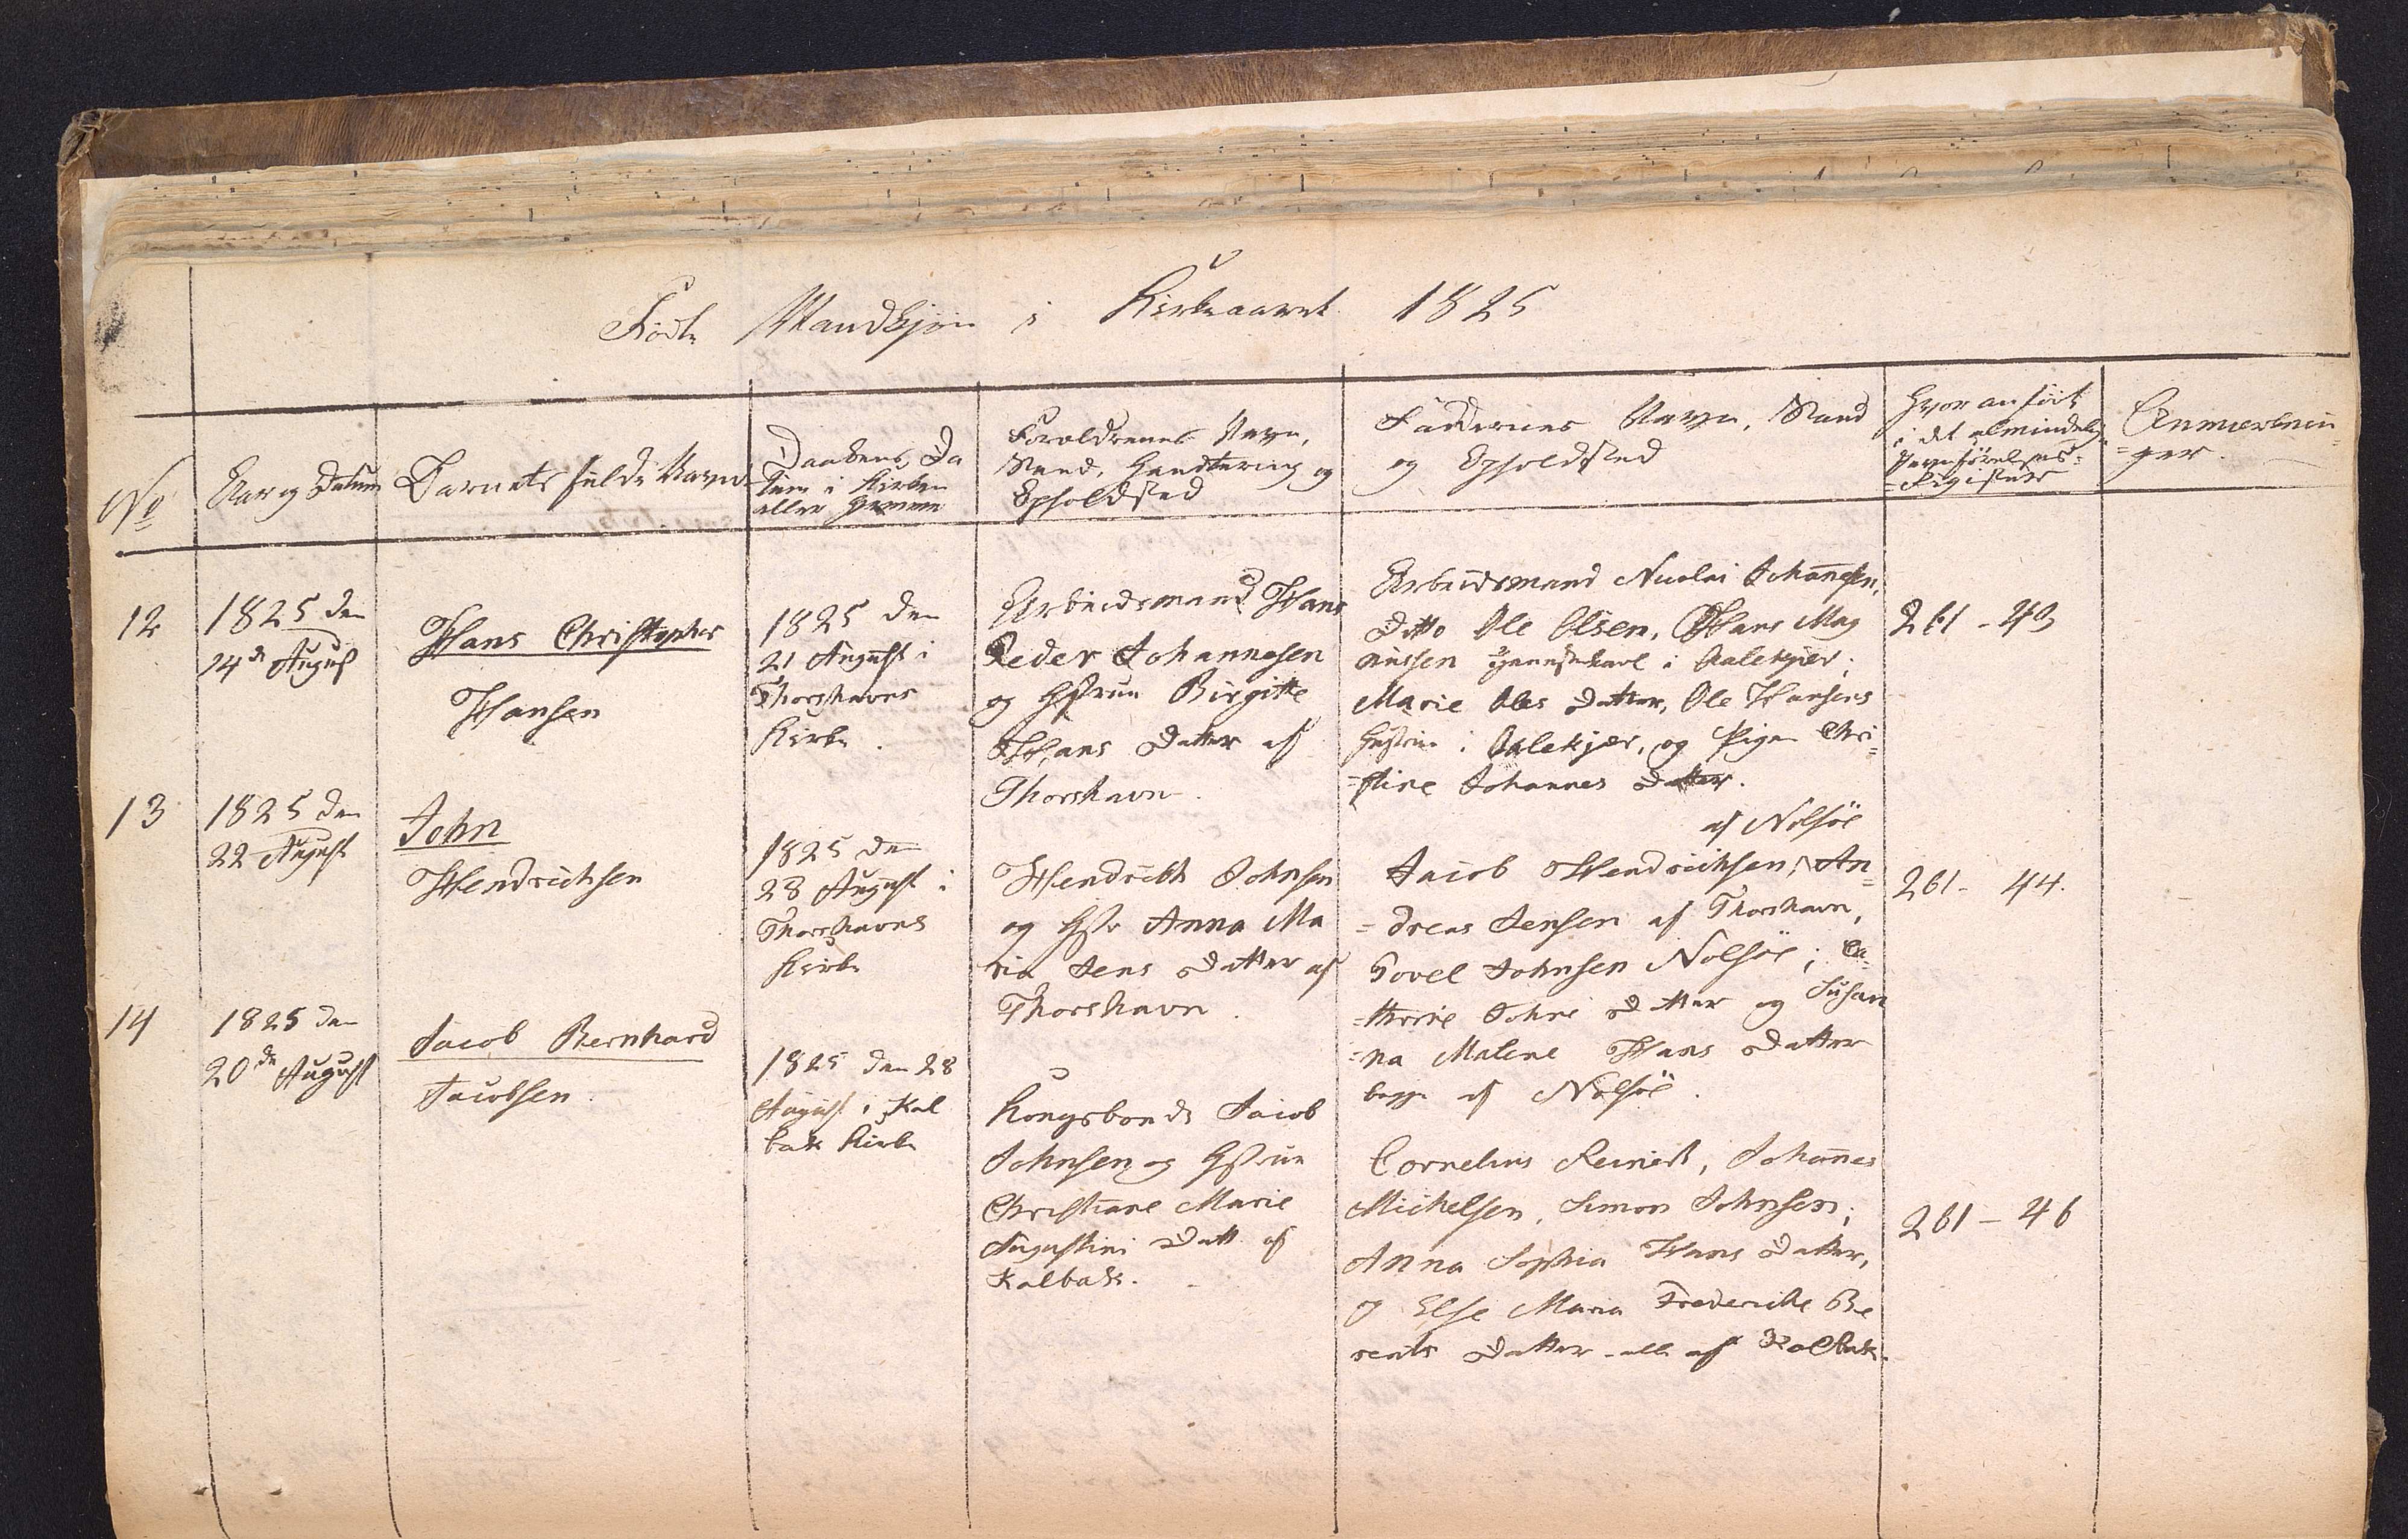 Fødte Mandkjøn i Kirkeaaret 1825
No
Aar og Datum
Barnets fulde Navn
Daabens Da
tum i Kirken
eller Hjemme
Forældrenes Navn,
Stand, Handtering og
Opholdsted
Faddernes Navn, Stand
og Opholdsted
Hvor anført
i det almindelig
Jevnførelses=
=Register
Anmærknin=
=ger.
12
1825 den
14de August
Hans Christopher
Hansen
1825 den
21 August i
Thorshavns
Kirke.
Arbeidsmand Hans
Peder Johannesen
og Hustrue Birgitte
Hans Datter af
Thorshavn.
Arbeidsmand Nicolai Johannesen,
Ditto Ole Olsen, Hans Mag
nussen Tjenestekarl i Aalekjær;
Marie Oles Datter, Ole Hansens
Hustrue i Aalekjær, og Pigen Chri=
=stine Johannes Datter.
261 - 43
13
1825 den
22 August
John
Hendrichsen
1825 den
28 August i
Thorshavns
Kirke
Hendrich Johnsen
og Hstr Anna Ma
ria Jens Datter af
Thorshavn.
af Nolsöe
Jacob Hendrichsen, An=
=dreas Jensen af Thorshavn,
Povel Johnsen Nolsöe; Ca=
=thrine Johns Datter og Susan
=na Malene Hans Datter
begge af Nolsöe.
261 - 44.
14
1825 den
20de August
Jacob Bernhard
Jacobsen.
1825 den 28
August i Kal
bak Kirke
Kongsbonde Jacob
Johnsen og Hstrue
Christiane Marie
Augustini Datt af
Kalbak.
Cornelius Reinert, Johannes
Michelsen, Simon Johnsen;
Anna Sophia Hans Datter,
og Else Maria Frederiche Be
rents Datter - alle af Kalbak.
261 - 46